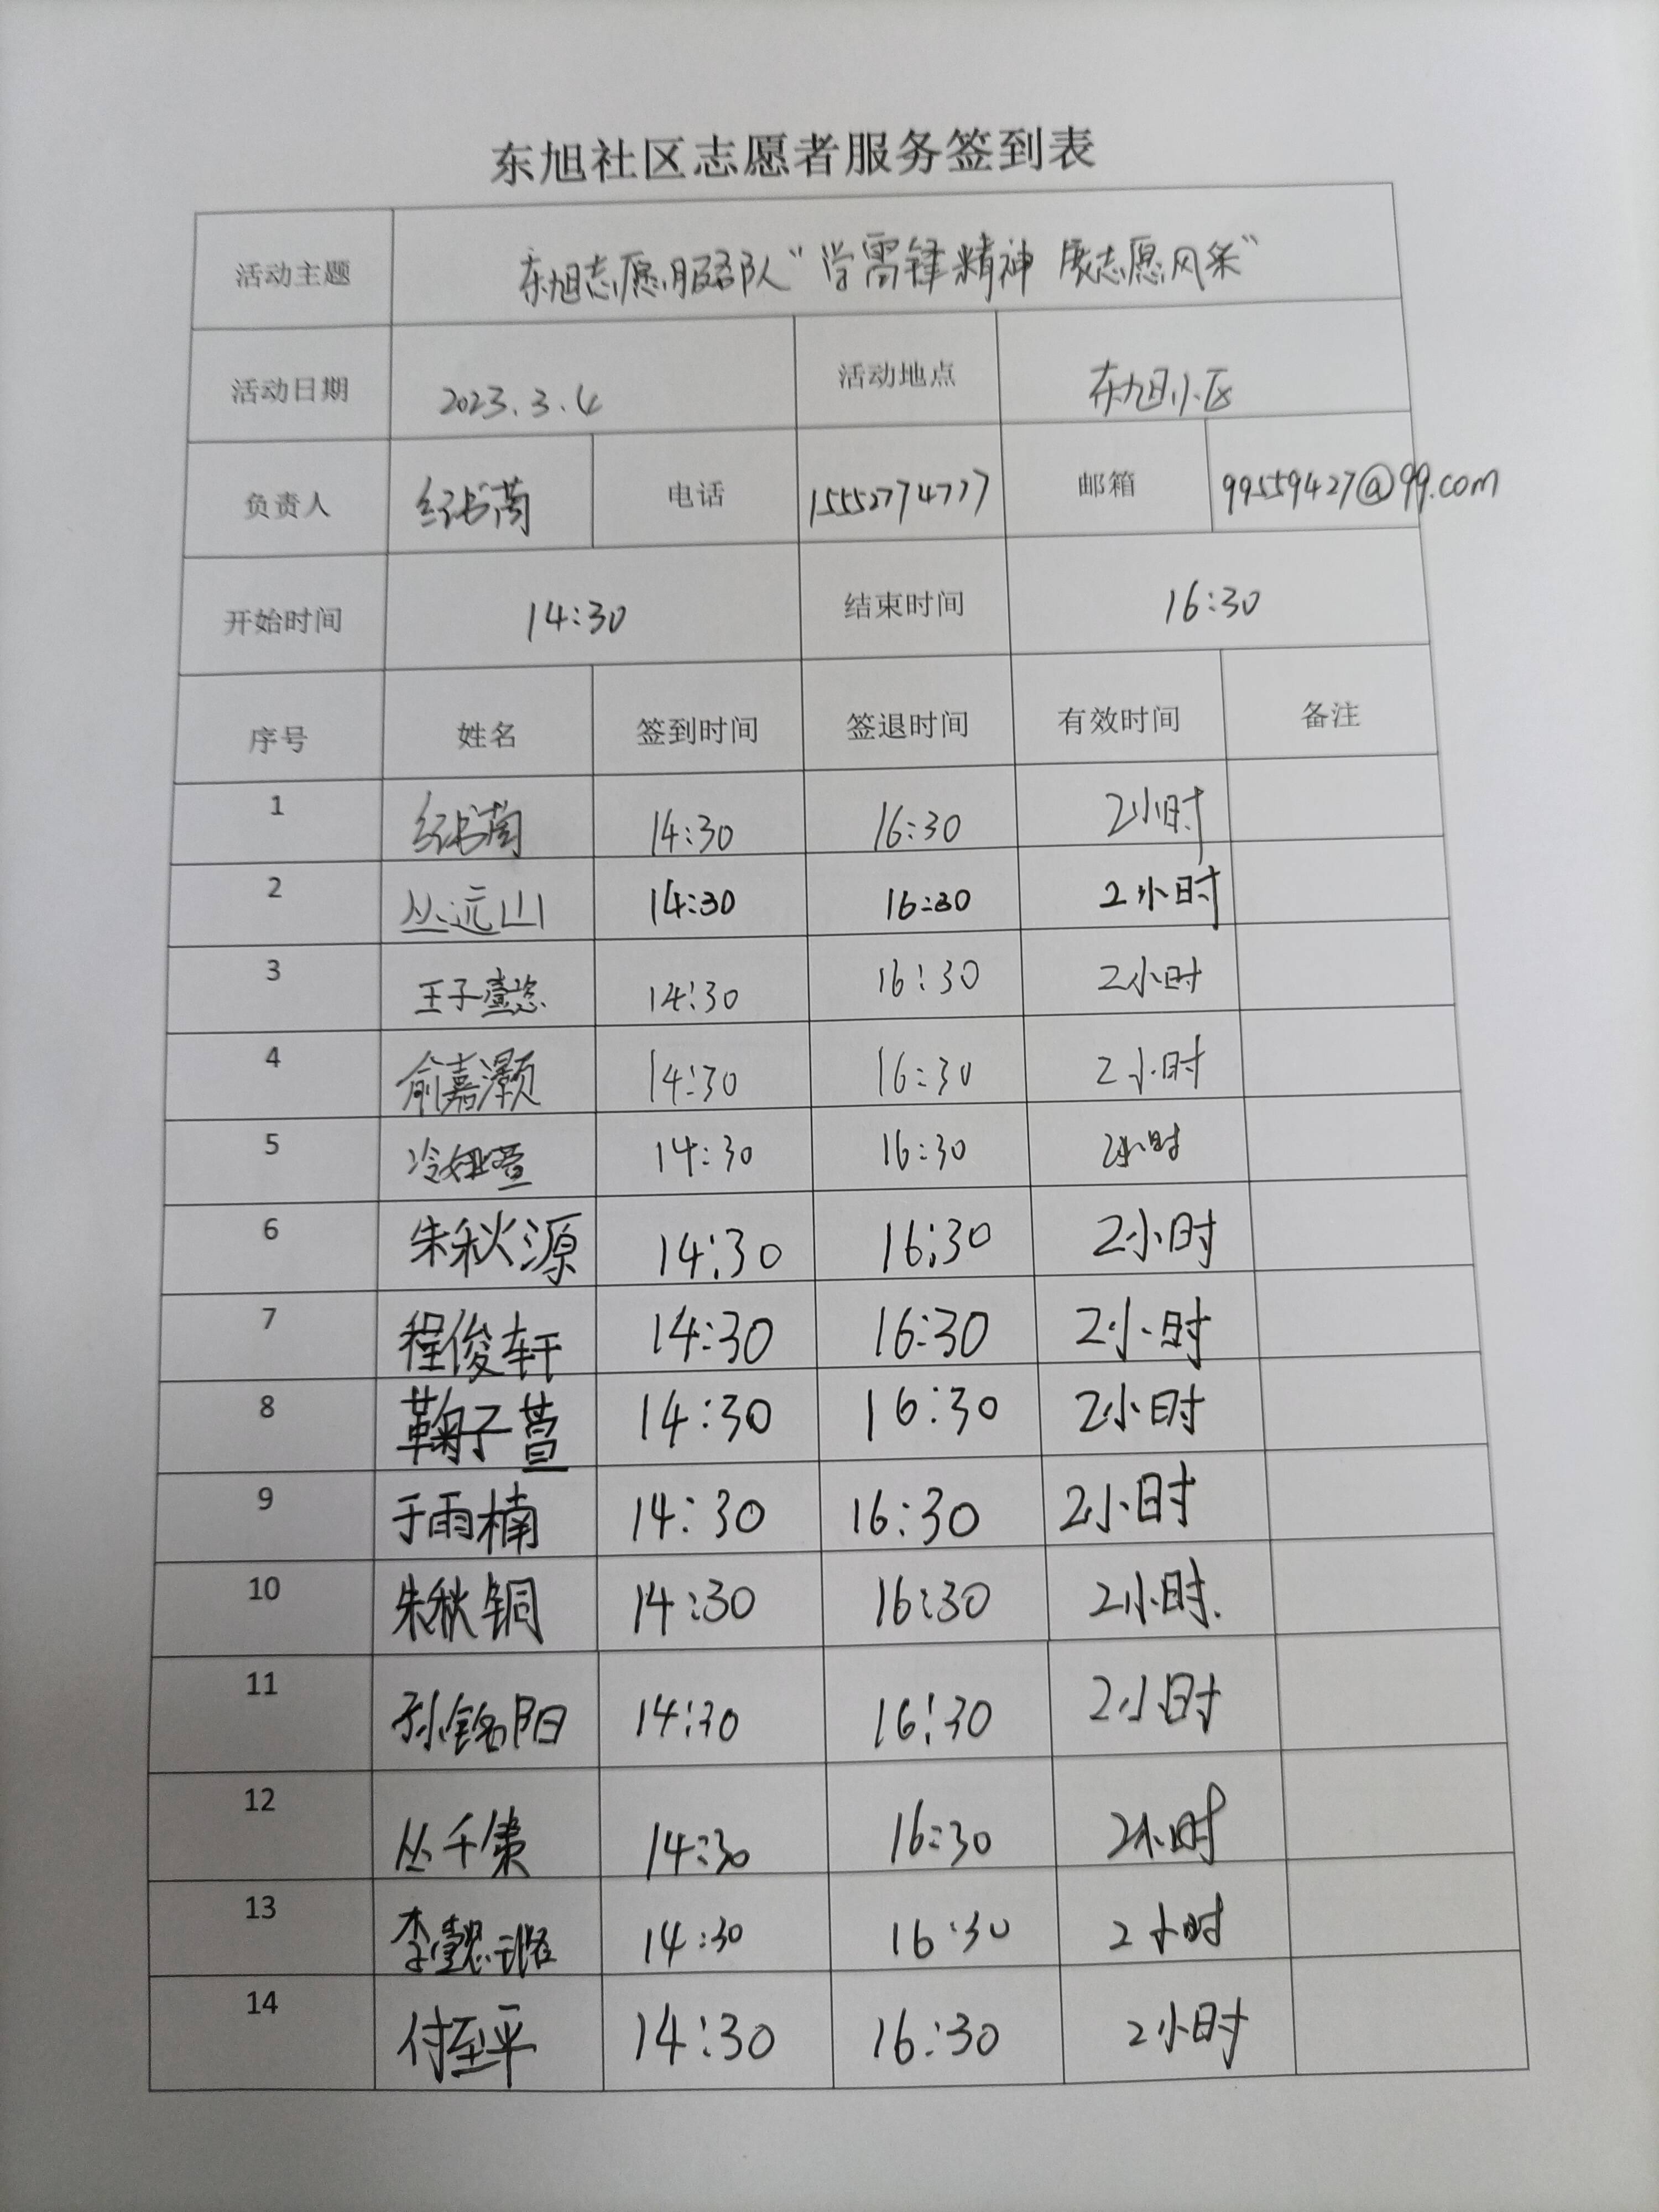 东旭社区志愿者服务签到表
活动主题 东旭志愿服务队“学雷锋精神 展志愿风采”
活动日期 2023.3.4 活动地点 东旭小区
负责人 纪书菡 电话 15552774777 邮箱 99559427@99.com
开始时间 14:30 结束时间 16:30
序号 姓名 签到时间 签退时间 有效时间 备注
1 纪书菡 14:30 16:30 2小时
2 丛远山 14:30 16:30 2小时
3 王子懿 14:30 16:30 2小时
4 俞嘉灏 14:30 16:30 2小时
5 14:30 16:30 2小时
6 朱秋源 14:30 16:30 2小时
7 程俊轩 14:30 16:30 2小时
8 鞠子萱 14:30 16:30 2小时
9 于雨楠 14:30 16:30 2小时
10 朱秋铜 14:30 16:30 2小时.
11 孙铭阳 14:30 16:30 2小时
12 丛千 14:30 16:30 2小时
13 李 14:30 16:30 2小时
14 付至平 14:30 16:30 2小时